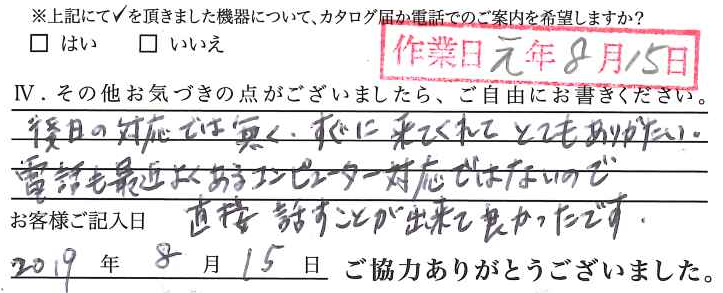 ※上記にて✓を頂きました機器について、カタログ届か電話でのご案内を希望しますか?
□ はい □ いいえ
作業日 元年8月15日
Ⅳ.その他お気づきの点がございましたら、ご自由にお書きください。
後日の対応では無く、すぐに来てくれてとてもありがたい。
電話も最近よくあるコンピューター対応ではないので
直接話すことが出来て良かったです.
お客様ご記入日
2019年8月15日 ご協力ありがとうございました。